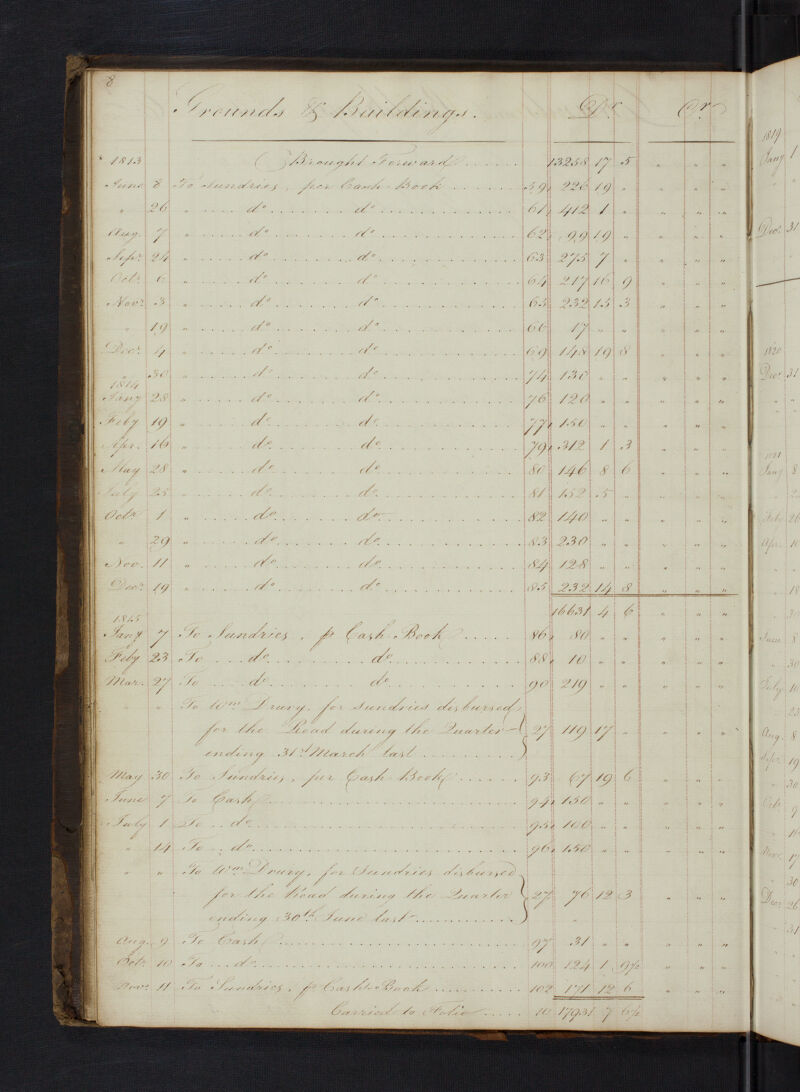 8
Grounds & Buildings. Dr. Cr.
1813 Brought Forward ...... 13258 17 5 " " "
June 8 To Sundries, per Cash Book ...... 59 226 19 " " " "
" 26 " ..... do ........ do ........ 61 412 1 " " " "
Aug. 7 " ..... do ........ do ........ 62 99 19 " " " "
Sepr. 24 " ..... do ........ do ........ 63 275 7 " " " "
Octr. 6 " ..... do ........ do ........ 64 217 16 9 " " "
Novr. 3 " ..... do ........ do ........ 65 232 15 3 " " "
" 19 " ..... do ........ do ........ 66 17 " " " " "
Decr. 4 " ..... do ........ do ........ 69 148 19 8 " " "
" 30 " ..... do ........ do ........ 74 130 " " " " "
1814
Jany 28 " ..... do ........ do ........ 76 120 " " " " "
Feby 19 " ..... do ........ do ........ 77 150 " " " " "
Apr. 16 " ..... do ........ do ........ 79 312 1 3 " " "
May 28 " ..... do ........ do ........ 80 146 8 6 " " "
July 25 " ..... do ........ do ........ 81 152 5 " " " "
Octr. 1 " ..... do ........ do ........ 82 140 " " " " "
" 29 " ..... do ........ do ........ 83 230 " " " " "
Nov. 11 " ..... do ........ do ........ 84 128 " " " " "
Decr. 19 " ..... do ........ do ........ 85 232 14 8 " " "
16631 4 6 " " "
1815
Jany 7 To Sundries, pr Cash Book ...... 86 80 " " " " "
Feby 23 To .... do ........ do ........ 88 10 " " " " "
Mar. 27 To .... do ........ do ........ 90 219 " " " " "
" " To Wm Drury, for sundries disbursed
for the Road during the Quarter 27 119 17 " " " "
ending 31st March last ..........
May 30 To Sundries, per Cash Book ...... 93 67 19 6 " " "
June 7 To Cash ...... 94 150 " " " " "
July 1 To .. do ...... 95 100 " " " " "
" 14 To .. do ...... 96 150 " " " " "
" " To Wm Drury, for Sundries disbursed
for the Road during the Quarter 27 76 12 3 " " "
ending 30th June last ..........
Aug. 9 To Cash ...... 97 31 " " " " "
Octr. 10 To ... do ...... 100 124 1 9½ " " "
Novr. 11 To Sundries, pr Cash Book ...... 102 171 12 6 " " "
Carried to Folio ..... 10 17931 7 6½
1819
Jany 1
Decr. 31
1820
Decr. 31
1821
Jany 8
Feby 26
Apr. 10
" 18
" 30
June 8
" 30
July 10
" 23
Aug. 8
Sepr. 19
" 30
Octr. 9
Nov. 17
" 30
Decr. 26
" 31